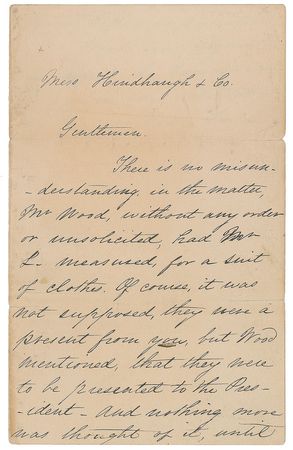 Mess Hindhaugh & Co.
Gentlemen.
There is no misun-
-derstanding, in the matter,
Mr Wood, without any order
or unsolicited, had Mr
L. measured, for a suit
of clothes. Of course, it was
not supposed, they were a
present from you, but Wood
mentioned, that they were
to be presented to the Pres-
-ident - and nothing more
was thought of it, until